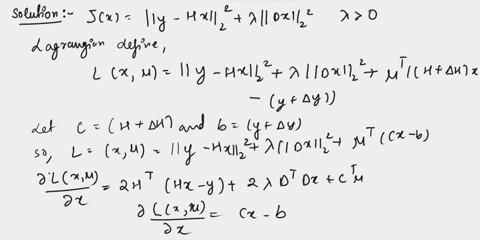 Solution:- J(x) = ||y - Hx||₂² + λ||Dx||₂² λ>0
Lagrangion define,
L(x, μ) = ||y - Hx||₂² + λ||Dx||₂² + μᵀ((H+ΔH)x
- (y+Δy))
Let C = (H+ΔH) and b = (y+Δy)
so, L = (x, μ) = ||y - Hx||₂² + λ(||Dx||₂² + μᵀ(Cx-b)
∂L(x, μ)/∂x = 2Hᵀ (Hx-y) + 2λDᵀDx + Cᵀμ
∂L(x, μ)/∂x = Cx - b